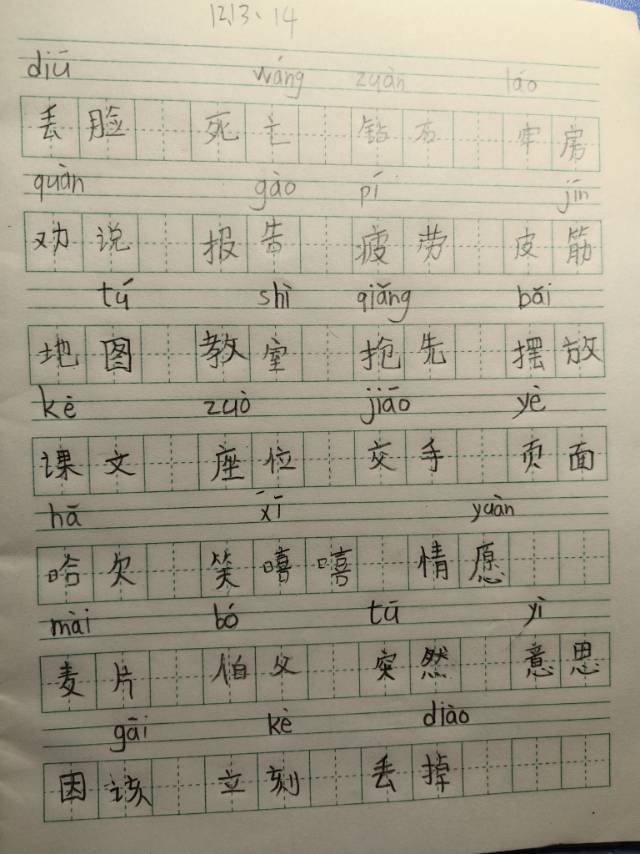 1213、14
diū wáng zuàn láo
丢脸 死亡 钻石 牢房
quàn gào pí jīn
劝说 报告 疲劳 皮筋
tú shì qiǎng bǎi
地图 教室 抢先 摆放
kè zuò jiāo yè
课文 座位 交手 页面
hā xī yuàn
哈欠 笑嘻嘻 情愿
mài bó tū yì
麦片 伯父 突然 意思
gāi kè diào
因该 立刻 丢掉